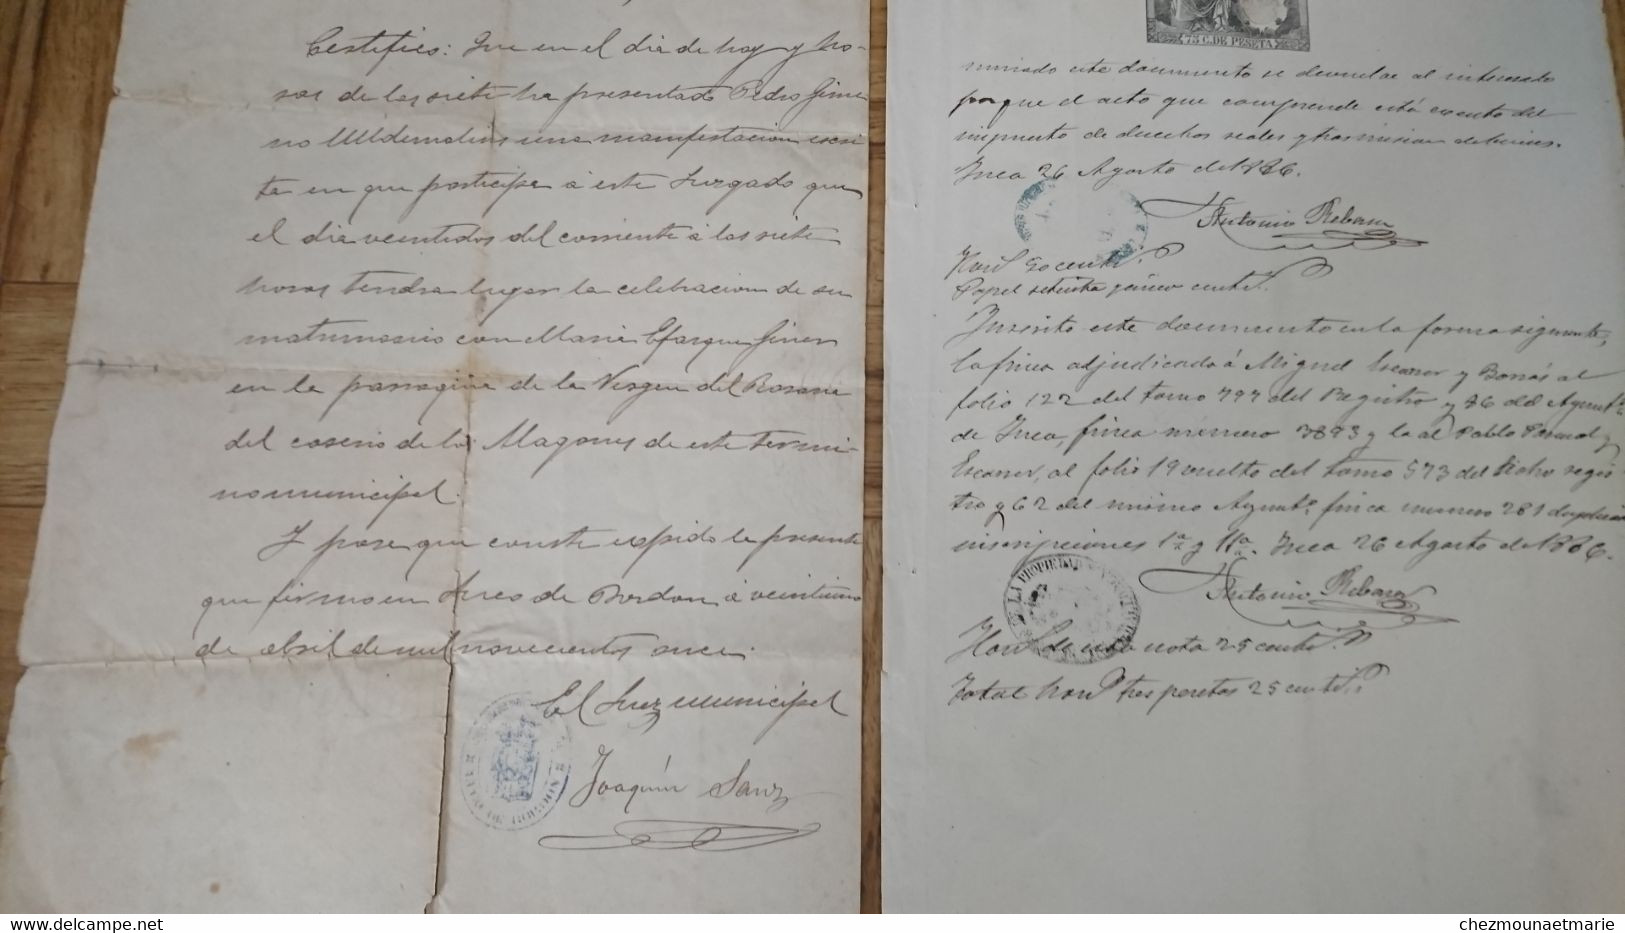 Certifico: Que en el dia de hoy y ho-
ras de las siete ha presentado Pedro Gime
no una manifestacion escri
ta en que participa á este Juzgado que
el dia veintidos del corriente á las siete
horas tendra lugar la celebracion de su
matrimonio con Maria Giner
en la parroquia de la Virgen del Rosario
del caserio de los Magones de este termi-
no municipal.
Y para que conste expido la presente
que firmo en Arco de Bordon á veintiuno
de abril de mil novecientos once.
El Juez municipal
Joaquín Sanz
75 C. DE PESETA
este documento se devuelve al interesado
porque el acto que comprende está exento del
impuesto de derechos reales y trasmision de bienes.
Inca 26 Agosto de 1886.
Antonio
Papel setenta y cinco cent.
Inscrito este documento en la forma siguiente,
la finca adjudicada á Miguel y Borrás al
folio 122 del tomo 797 del Registro y 76 del Ayunt.º
de Inca, finca número 3893 y la al Pablo y
al folio 19 vuelto del tomo 573 del dicho regis
tro y 62 del mismo Ayunt.º finca número 281
inscripciones 1ª y Inca 26 Agosto de 1886.
Antonio
DE LA PROPIEDAD
Hon.s de esta nota 25 cent.
Total hon.s tres pesetas 25 cent.
chezmounaetmarie